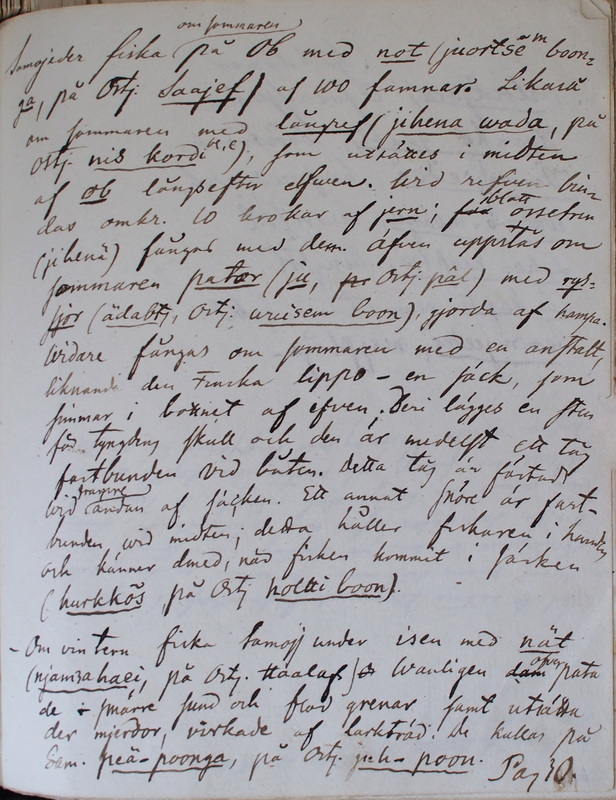 om sommaren
Samojeder fiska på Ob med not (juortse boon-
ga, på Ostj. Saajef) af 100 famnar. Likaså
om sommaren med långref (jihena wada, på
Ostj. nis kordi), som utsättes i midten
af Ob långsefter elfwen. Wid refven bin-
das omkr. 10 krokar af jern; blott
(jihenä) fångas med dem. Äfven uppstås om
sommaren pator (ju, Ostj. päl) med rys-
jor (ädabtj, Ostj. wuisem boon), gjorda af hampa.
Widare fångas om sommaren med en anstalt,
liknande den Finska lippo - en säck, som
simmar i bottnet af elfven. Deri lägges en sten
för tyngdens skull och den är medelst ett tåg
fastbunden vid båten. Detta tåg är fästadt
wid ändan af säcken. Ett annat snöre är fast-
bundet wid midten; detta håller fiskaren i handen
och känner dmed, när fisken kommit i säcken
(hurkkòs, på Ostj. holtti boon).
- Om vintern fiska Samoj. under isen med nät
(njamza haei, på Ostj. Haalaf) Wanligen pata
de i smärre sund och flod grenar samt utsätta
der mjerdor, virkade af larkträd. De kallas på
Sam. peä-poonga, på Ostj. juh-poon.
Pag 30.